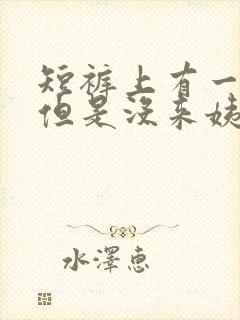 短裤上有一
但是没来姨
水泽惠